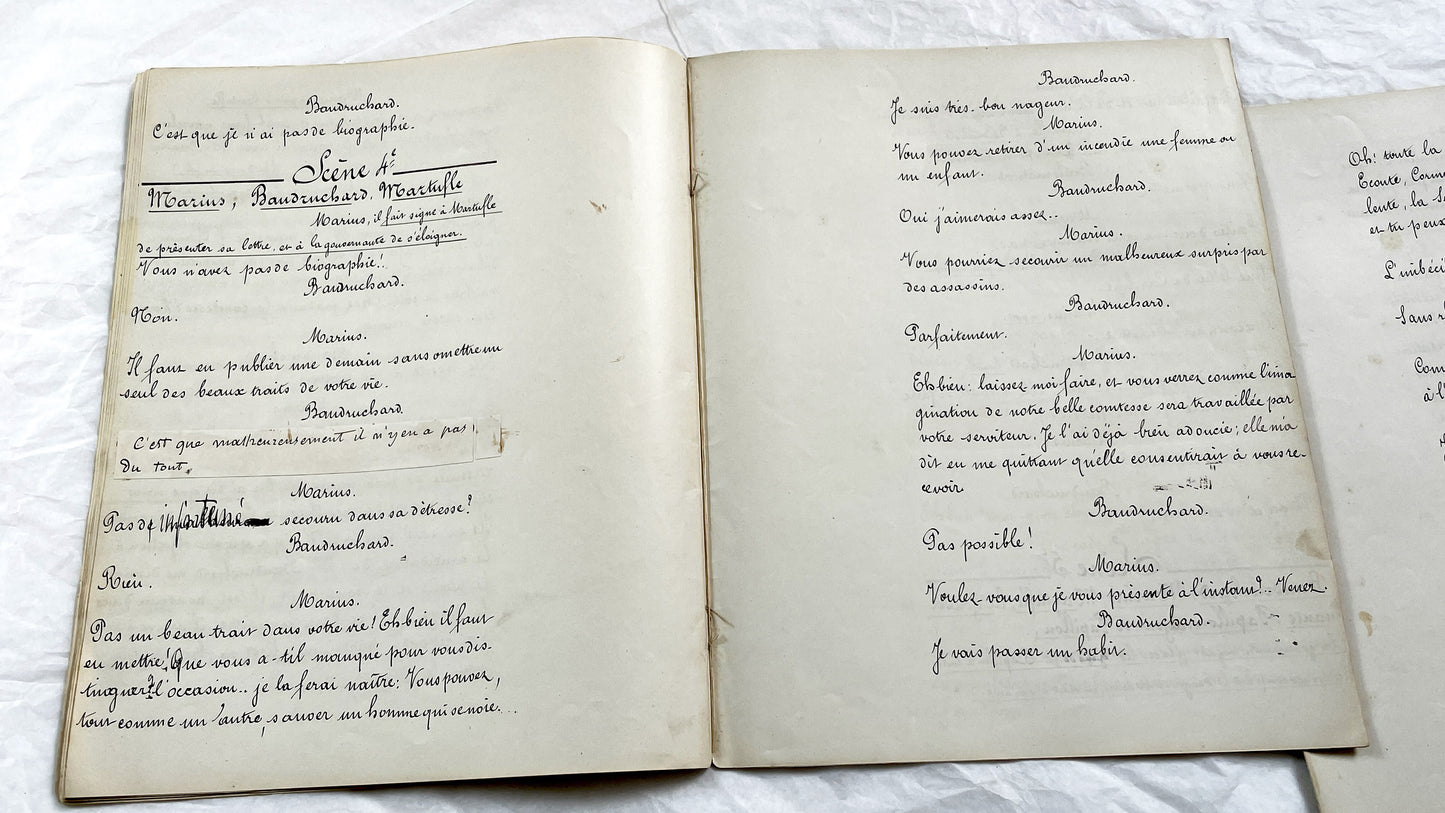 Baudruchard.
C'est que je n'ai pas de biographie.
Scène 4e
Marius, Baudruchard, Martufle
Marius, il fait signe à Martufle
de présenter sa lettre, et à la gouvernante de s'éloigner.
Vous n'avez pas de biographie!
Baudruchard.
Non.
Marius.
Il faut en publier une demain sans omettre un
seul des beaux traits de votre vie.
Baudruchard.
C'est que malheureusement il n'y en a pas
du tout.
Marius.
Pas d' infortuné secouru dans sa détresse?
Baudruchard.
Rien.
Marius.
Pas un beau trait dans votre vie! Eh bien il faut
en mettre! Que vous a-t-il manqué pour vous dis-
tinguer? l'occasion.. je la ferai naître: Vous pouvez,
tout comme un autre, sauver un homme qui se noie...
Baudruchard.
Je suis très bon nageur.
Marius.
Vous pouvez retirer d'un incendie une femme ou
un enfant.
Baudruchard.
Oui j'aimerais assez..
Marius.
Vous pourriez secourir un malheureux surpris par
des assassins.
Baudruchard.
Parfaitement.
Marius.
Eh bien: laissez moi faire, et vous verrez comme l'ima
gination de notre belle comtesse sera travaillée par
votre serviteur. Je l'ai déjà bien adoucie; elle m'a
dit en me quittant qu'elle consentirait à vous re-
cevoir
Baudruchard.
Pas possible!
Marius.
Voulez-vous que je vous présente à l'instant?.. Venez.
Baudruchard.
Je vais passer un habit.
Oh! toute la
Ecoute,
lente, la
et tu peux
L'imbéci
Sans r
Com
à l'